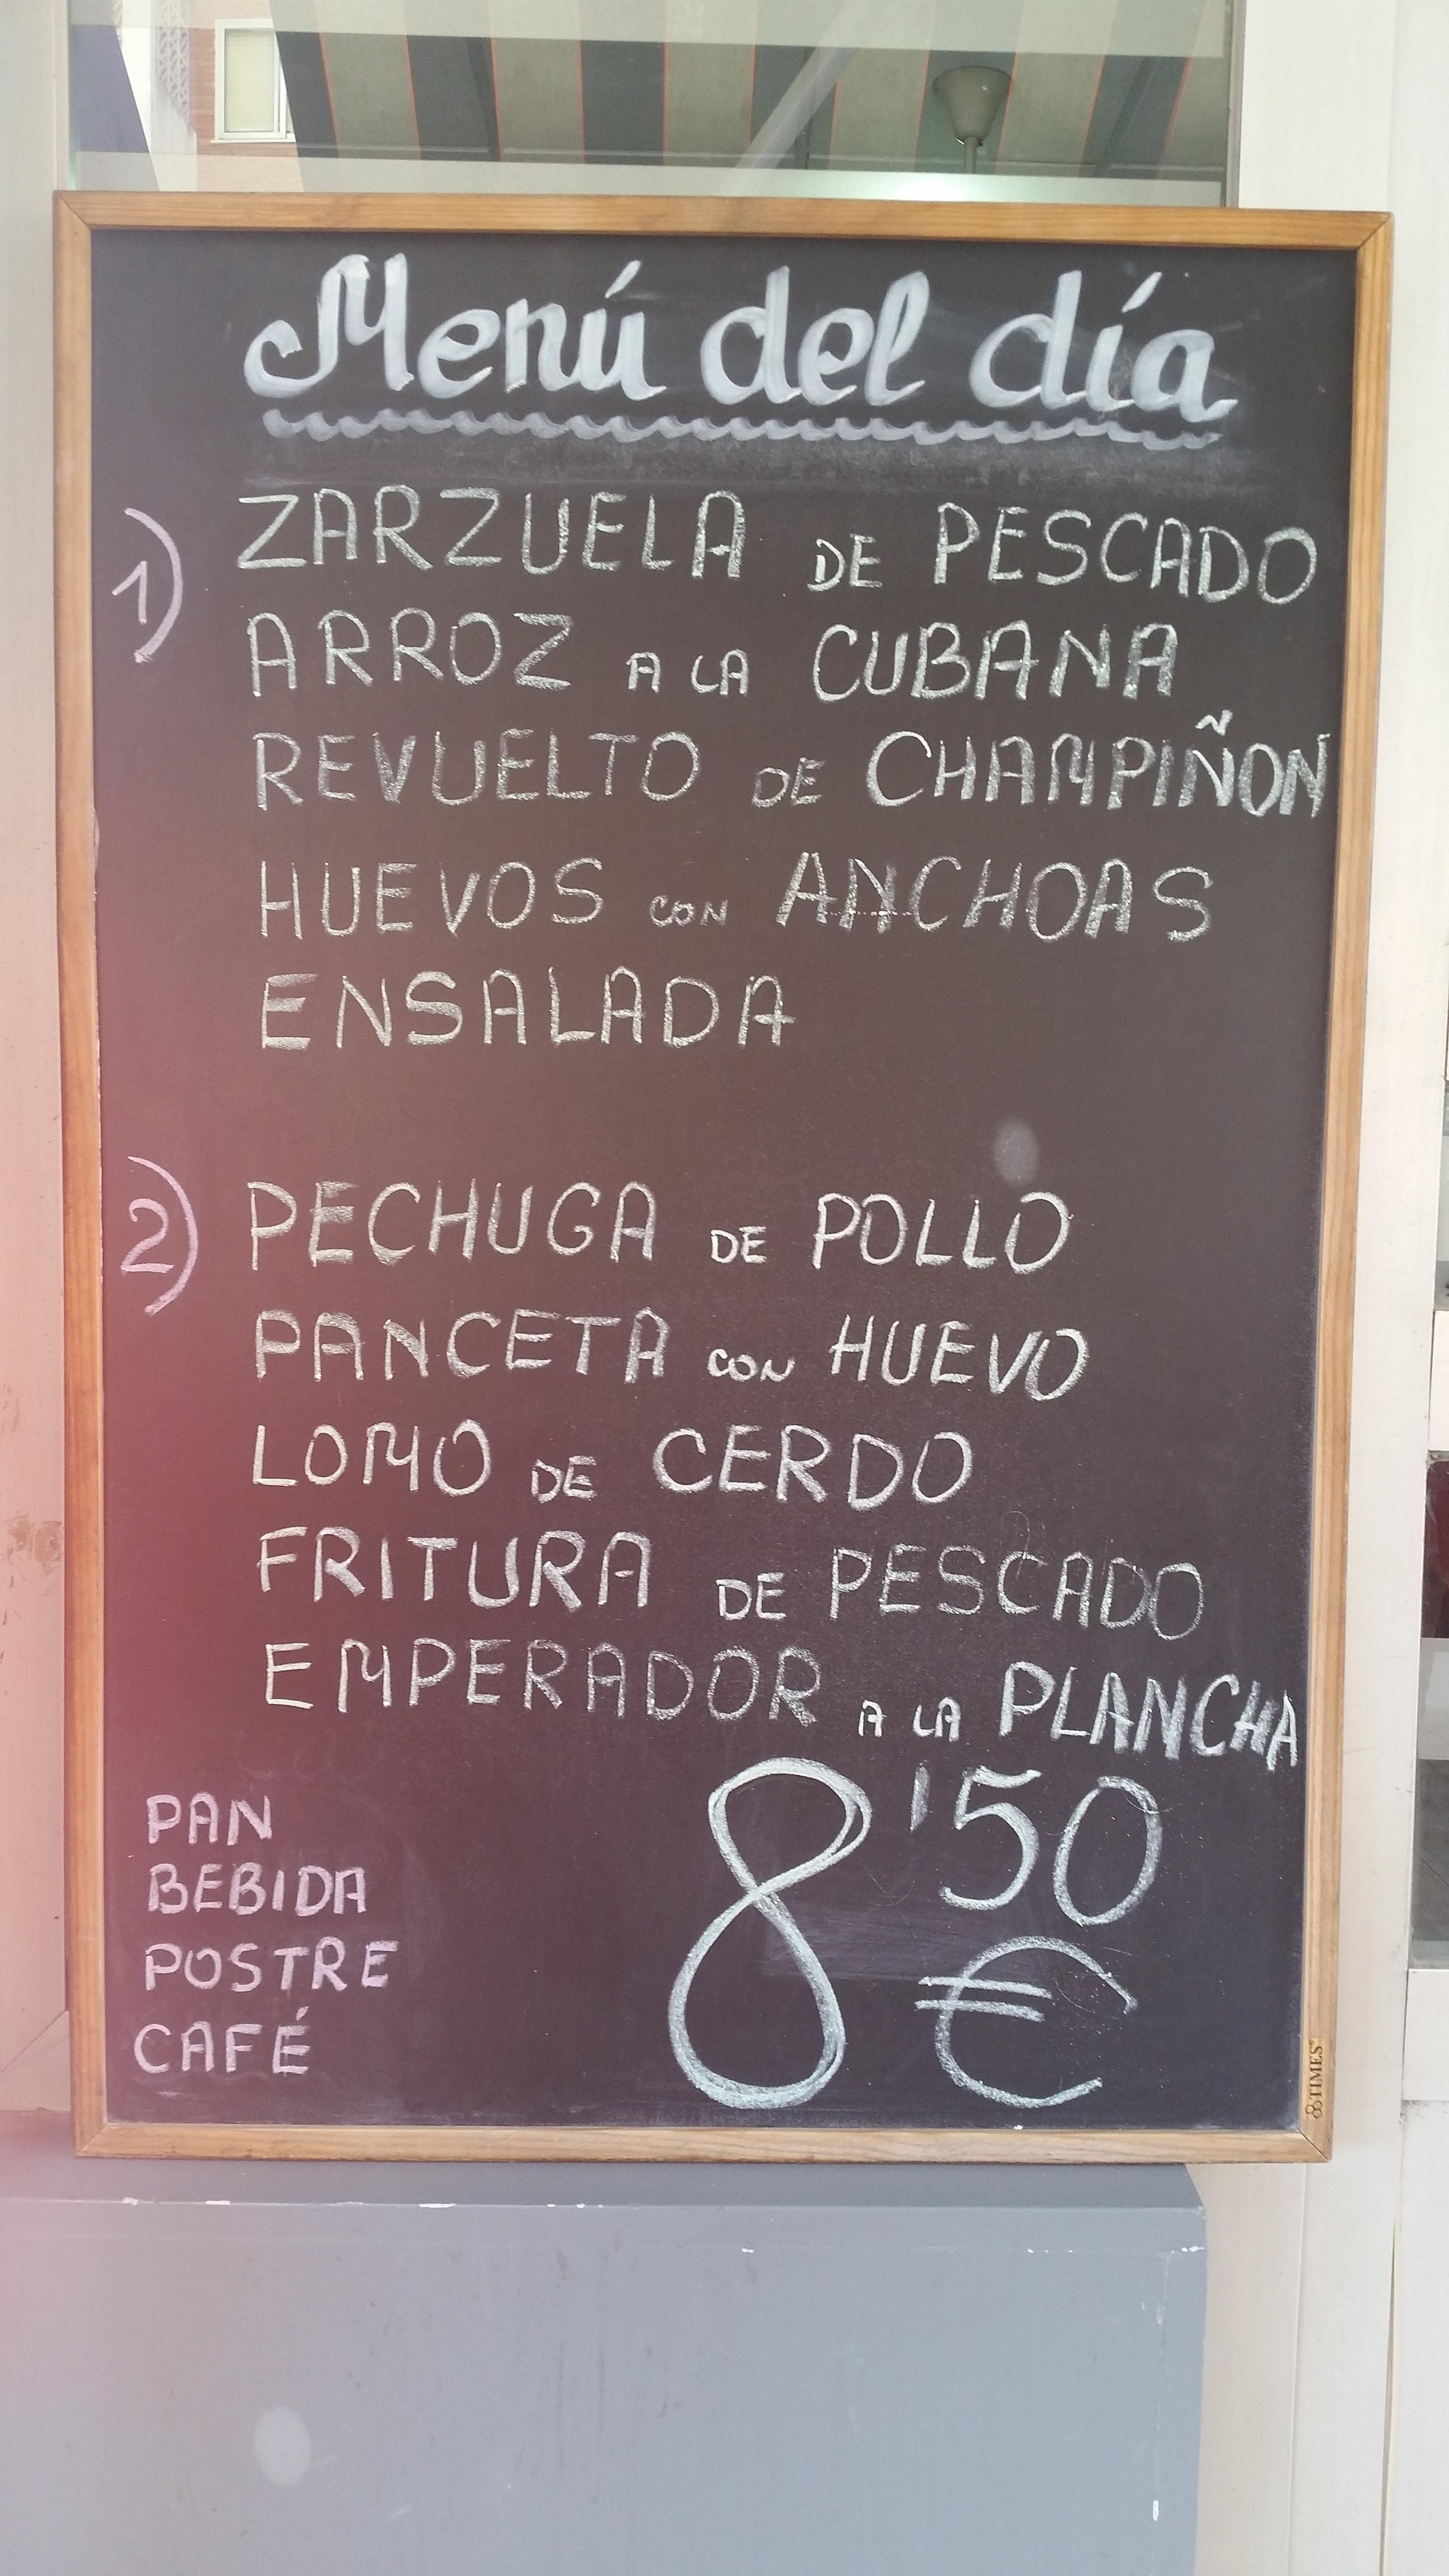 Menú del día
1) ZARZUELA DE PESCADO
ARROZ A LA CUBANA
REVUELTO DE CHAMPIÑON
HUEVOS CON ANCHOAS
ENSALADA
2) PECHUGA DE POLLO
PANCETA CON HUEVO
LOMO DE CERDO
FRITURA DE PESCADO
EMPERADOR A LA PLANCHA
PAN
BEBIDA
POSTRE
CAFÉ
8'50
€
TIMES